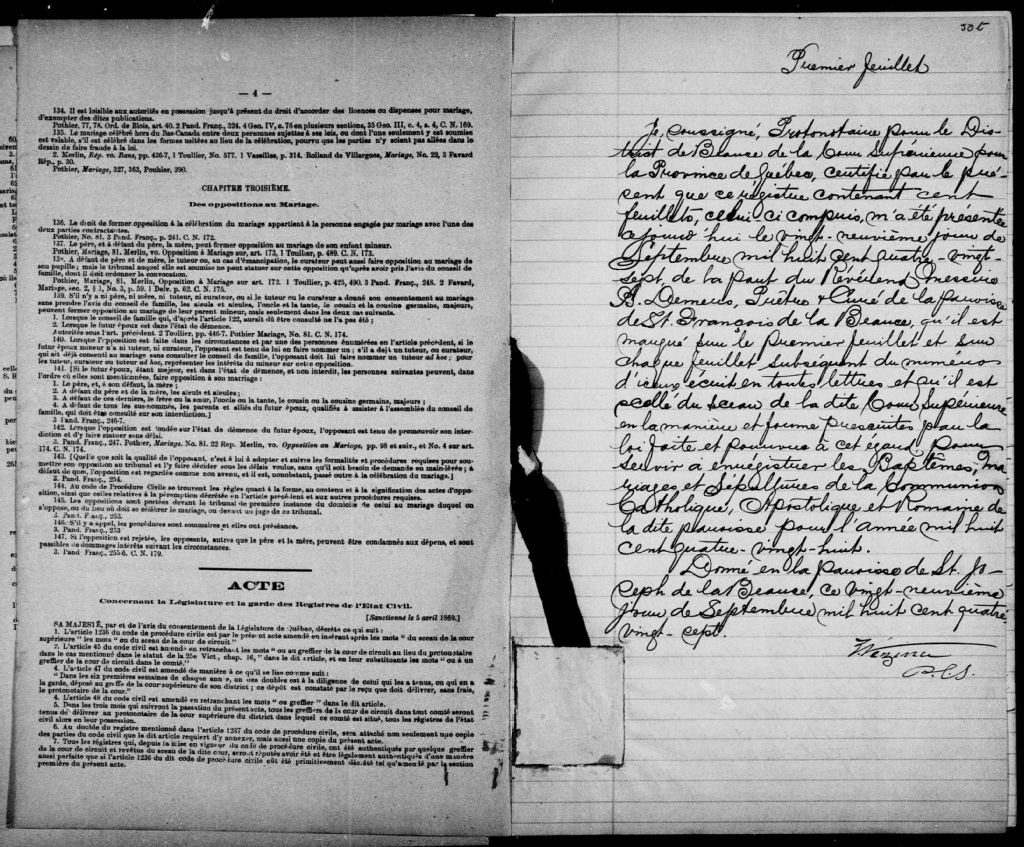 — 4 —
134. Il est loisible aux autorités en possession jusqu'à présent du droit d'accorder des licences ou dispenses pour mariage,
d'exempter des dites publications.
Pothier, 77, 78. Ord. de Blois, art. 40. 2 Pand. Franç., 324. 4 Geo. IV, c. 76 en plusieurs sections, 35 Geo. III, c. 4, s. 4, C. N. 169.
135. Le mariage célébré hors du Bas-Canada entre deux personnes sujettes à ses lois, ou dont l'une seulement y est soumise
est valable, s'il est célébré dans les formes usitées au lieu de la célébration, pourvu que les parties n'y soient pas allées dans le
dessin de faire fraude à la loi.
2. Merlin, Rép. vo. Bans, pp. 436-7, 1 Toullier, No. 577. 1 Vazeilles, p. 314. Rolland de Villargues, Mariage, No. 22, 3 Favard
Rép., p. 30.
Pothier, Mariage, 327, 363, Pouhier, 390.
CHAPITRE TROISIÈME.
Des oppositions au Mariage.
136. Le droit de former opposition à la célébration du mariage appartient à la personne engagée par mariage avec l'une des
deux parties contractantes.
Pothier, No. 81, 3 Pand. Franç., p. 241. C. N. 172.
137. Le père, et à défaut du père, la mère, peut former opposition au mariage de son enfant mineur.
Pothier, Mariage, 81. Merlin, vo. Opposition à Mariage sur, art. 173, 1 Toullier, p. 489. C. N. 173.
138. A défaut de père et de mère, le tuteur ou, au cas d'émancipation, le curateur peut aussi faire opposition au mariage de
son pupille; mais le tribunal auquel elle est soumise ne peut statuer sur cette opposition qu'après avoir pris l'avis du conseil de
famille, dont il doit ordonner la convocation.
Pothier, Mariage, 81. Merlin, Opposition à Mariage sur art. 172. 1 Toullier, p. 425, 490. 3 Pand. Franç., 248. 2 Favard,
Mariage, sec. 2, § 1, No. 3, p. 59. 1 Delv. p. 62. C. N. 174.
139. S'il n'y a ni père, ni mère, ni tuteur, ni curateur, ou si le tuteur ou le curateur a donné son consentement au mariage
sans prendre l'avis du conseil de famille, les aïeuls et aïeules, l'oncle et la tante, le cousin et la cousine germains, majeurs,
peuvent former opposition au mariage de leur parent mineur, mais seulement dans les deux cas suivants.
1. Lorsque le conseil de famille qui, d'après l'article 122, aurait dû être consulté ne l'a pas été;
2. Lorsque le futur époux est dans l'état de démence.
Autorités sous l'art. précédent. 2 Toullier, pp. 446-7. Pothier Mariage, No. 81. C. N. 174.
140. Lorsque l'opposition est faite dans les circonstances et par une des personnes énumérées en l'article précédent, si le
futur époux mineur n'a ni tuteur, ni curateur, l'opposant est tenu de lui en faire nommer un; s'il a déjà un tuteur, ou curateur,
qui ait déjà consenti au mariage sans consulter le conseil de famille, l'opposant doit lui faire nommer un tuteur ad hoc; pour
les tuteur, curateur ou tuteur ad hoc, représenter les intérêts du mineur sur cette opposition.
141. [Si le futur époux, étant majeur, est dans l'état de démence, et non interdit, les personnes suivantes peuvent, dans
l'ordre où elles sont mentionnées, faire opposition à son mariage:
1. Le père, et, à son défaut, la mère;
2. A défaut du père et de la mère, les aïeuls et aïeules;
3. A défaut de ces derniers, le frère ou la sœur, l'oncle ou la tante, le cousin ou la cousine germains, majeurs;
4. A défaut de tous les sus-nommés, les parents et alliés du futur époux, qualifiés à assister à l'assemblée du conseil de
famille, qui doit être consulté sur son interdiction.]
3 Pand. Franç., 246-7.
142. Lorsque l'opposition est fondée sur l'état de démence du futur époux, l'opposant est tenu de promouvoir son inter-
diction et d'y faire statuer sans délai.
3. Pand. Franç., 247. Pothier, Mariage, No. 81. 22 Rep. Merlin, vo. Opposition au Mariage, pp. 98 et suiv., et No. 4 sur art.
174. C. N. 174.
143. [Quelle que soit la qualité de l'opposant, c'est à lui à adopter et suivre les formalités et procédures requises pour sou-
mettre son opposition au tribunal et l'y faire décider sous les délais voulus, sans qu'il soit besoin de demande en main-levée; à
défaut de quoi, l'opposition est regardée comme non avenue, et il est, nonobstant, passé outre à la célébration du mariage.]
2. Pand. Franç., 254.
144. Au code de Procédure Civile se trouvent les règles quant à la forme, au contenu et à la signification des actes d'oppo-
sition, ainsi que celles relatives à la péremption décrétée en l'article précédent et aux autres procédures requises.
145. Les oppositions sont portées devant le tribunal de première instance du domicile de celui au mariage duquel on
s'oppose, ou du lieu où doit se célébrer le mariage, ou devant un juge de ce tribunal.
3. Pand. Franç., 253.
146. S'il y a appel, les procédures sont sommaires et elles ont préséance.
3. Pand. Franç., 253
147. Si l'opposition est rejetée, les opposants, autres que le père et la mère, peuvent être condamnés aux dépens, et sont
passibles de dommages intérêts suivant les circonstances.
3. Pand. Franç., 255-6. C. N. 179.
ACTE
Concernant la Législature et la garde des Registres de l'Etat Civil.
[Sanctionné le 5 avril 1869.]
SA MAJESTÉ, par et de l'avis du consentement de la Législature de Québec, décrète ce qui suit:
1. L'article 1236 du code de procédure civile est par le présent acte amendé en insérant après les mots "du sceau de la cour
supérieure" les mots "ou du sceau de la cour de circuit"
2. L'article 45 du code civil est amendé en retranchant les mots "ou au greffier de la cour de circuit au lieu du protonotaire
dans le cas mentionné dans le statut de la 25e Vict., chap. 16," dans le dit article, et en leur substituants les mots "ou à un
greffier de la cour de circuit dans le comté."
4. L'article 47 du code civil est amendé de manière à ce qu'il se lise comme suit:
"Dans les six premières semaines de chaque année, un des doubles est à la diligence de celui qui les a tenus, ou qui en a
la garde, déposé au greffe de la cour supérieure de son district; ce dépôt est constaté par le reçu que doit délivrer, sans frais,
le protonotaire de la cour."
4. L'article 48 du code civil est amendé en retranchant les mots "os greffier" dans le dit article.
5. Dans les trois mois qui suivront la passation du présent acte, tous les greffiers de la cour de circuit dans tout comté seront
tenus de délivrer au protonotaire de la cour supérieure du district dans lequel ce comté est situé, tous les régistres de l'état
civil alors en leur possession.
6. Au double du registre mentionné dans l'article 1237 du code de procédure civile, sera attaché non seulement une copie
des parties du code civil que le dit article requiert d'y annexer, mais aussi une copie du présent acte.
7. Tous les régistres qui, depuis la mise en vigueur du code de procédure civile, ont été authentiqués par quelque greffier
de la cour de circuit et revêtus du sceau de la dite cour, seront réputés avoir été et être légalement authentiqués d'une manière
aussi parfaite que si l'article 1236 du dit code de procédure civile eût été primitivement décrété tel qu'amendé par la section
première du présent acte.
Premier feuillet
Je, soussigné, Protonotaire pour le Dis-
trict de Beauce de la Cour Supérieure pour
la Province de Québec, certifie par le pré-
sent que ce régistre contenant cent
feuillets, celui ci compris, m'a été présenté
aujourd'hui le vingt-neuvième jour de
Septembre mil huit cent quatre-vingt-
sept, de la part du Révérend Messire
B. Demers, Prêtre & Curé de la paroisse
de St. François de la Beauce, qu'il est
marqué sur le premier feuillet et sur
chaque feuillet subséquent du numéros
d'iceux écrit en toutes lettres et qu'il est
scellé du sceau de la dite Cour Supérieure
en la manière et forme prescrites par la
loi faite et pourvue à cet égard pour
servir à enrégistrer les Baptêmes, Ma-
riages et Sépultures de la Communion
Catholique, Apostolique et Romaine de
la dite paroisse pour l'année mil huit
cent quatre-vingt-huit.
Donné en la paroisse de St. Jo-
seph de la Beauce, ce vingt-neuvième
jour de Septembre mil huit cent quatre
vingt-sept.
P.C.S.